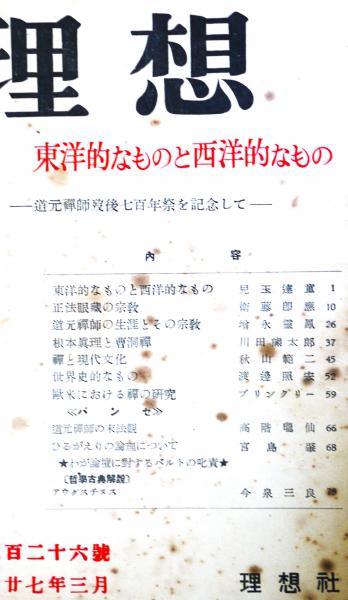 理想
東洋的なものと西洋的なもの
──道元禪師歿後七百年祭を記念して──
內容
東洋的なものと西洋的なもの 兒玉達童 1
正法眼藏の宗敎 衞藤卽應 10
道元禪師の生涯とその宗敎 增永靈鳳 26
根本眞理と曹洞禪 川田熊太郎 37
禪と現代文化 秋山範二 45
世界史的なもの 渡邊照宏 52
歐米における禪の硏究 ブリンクリー 59
≪パンセ≫
道元禪師の末法觀 高階瓏仙 66
ひるがえりの論理について 宮島肇 68
★わが論壇に對するバルトの叱責★
〔哲學古典解說〕
アウグスチヌス 今泉三良
百二十六號
廿七年三月
理想社